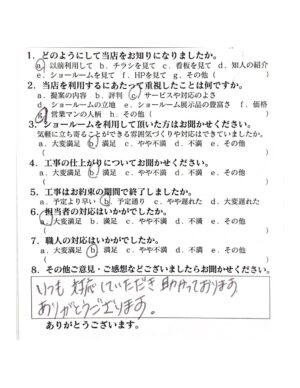 1．どのようにして当店をお知りになりましたか。
a．以前利用して b．チラシを見て c．看板を見て d．知人の紹介
e．ショールームを見て f．HPを見て g．その他（ ）
2．当店を利用するにあたって重視したことは何ですか。
a．提案の内容 b．評判 c．サービスや対応のよさ
d．ショールームの立地 e．ショールーム展示品の豊富さ f．価格
g．営業マンの人柄 h．その他（ ）
3．ショールームを利用して頂いた方はお聞かせください。
気軽に立ち寄ることができる雰囲気づくりや対応はできていましたか。
a．大変満足 b．満足 c．やや不満 d．不満 e．その他
（ ）
4．工事の仕上がりについてお聞かせください。
a．大変満足 b．満足 c．やや不満 d．不満 e．その他
（ ）
5．工事はお約束の期間で終了しましたか。
a．予定より早い b．予定通り c．やや遅れた d．大変遅れた
6．担当者の対応はいかがでしたか。
a．大変満足 b．満足 c．やや不満 d．不満 e．その他
（ ）
7．職人の対応はいかがでしたか。
a．大変満足 b．満足 c．やや不満 d．不満 e．その他
（ ）
8．その他ご意見・ご感想などございましたらお聞かせください。
いつも 対応していただき 助かっております
ありがとうございます。
ありがとうございます。